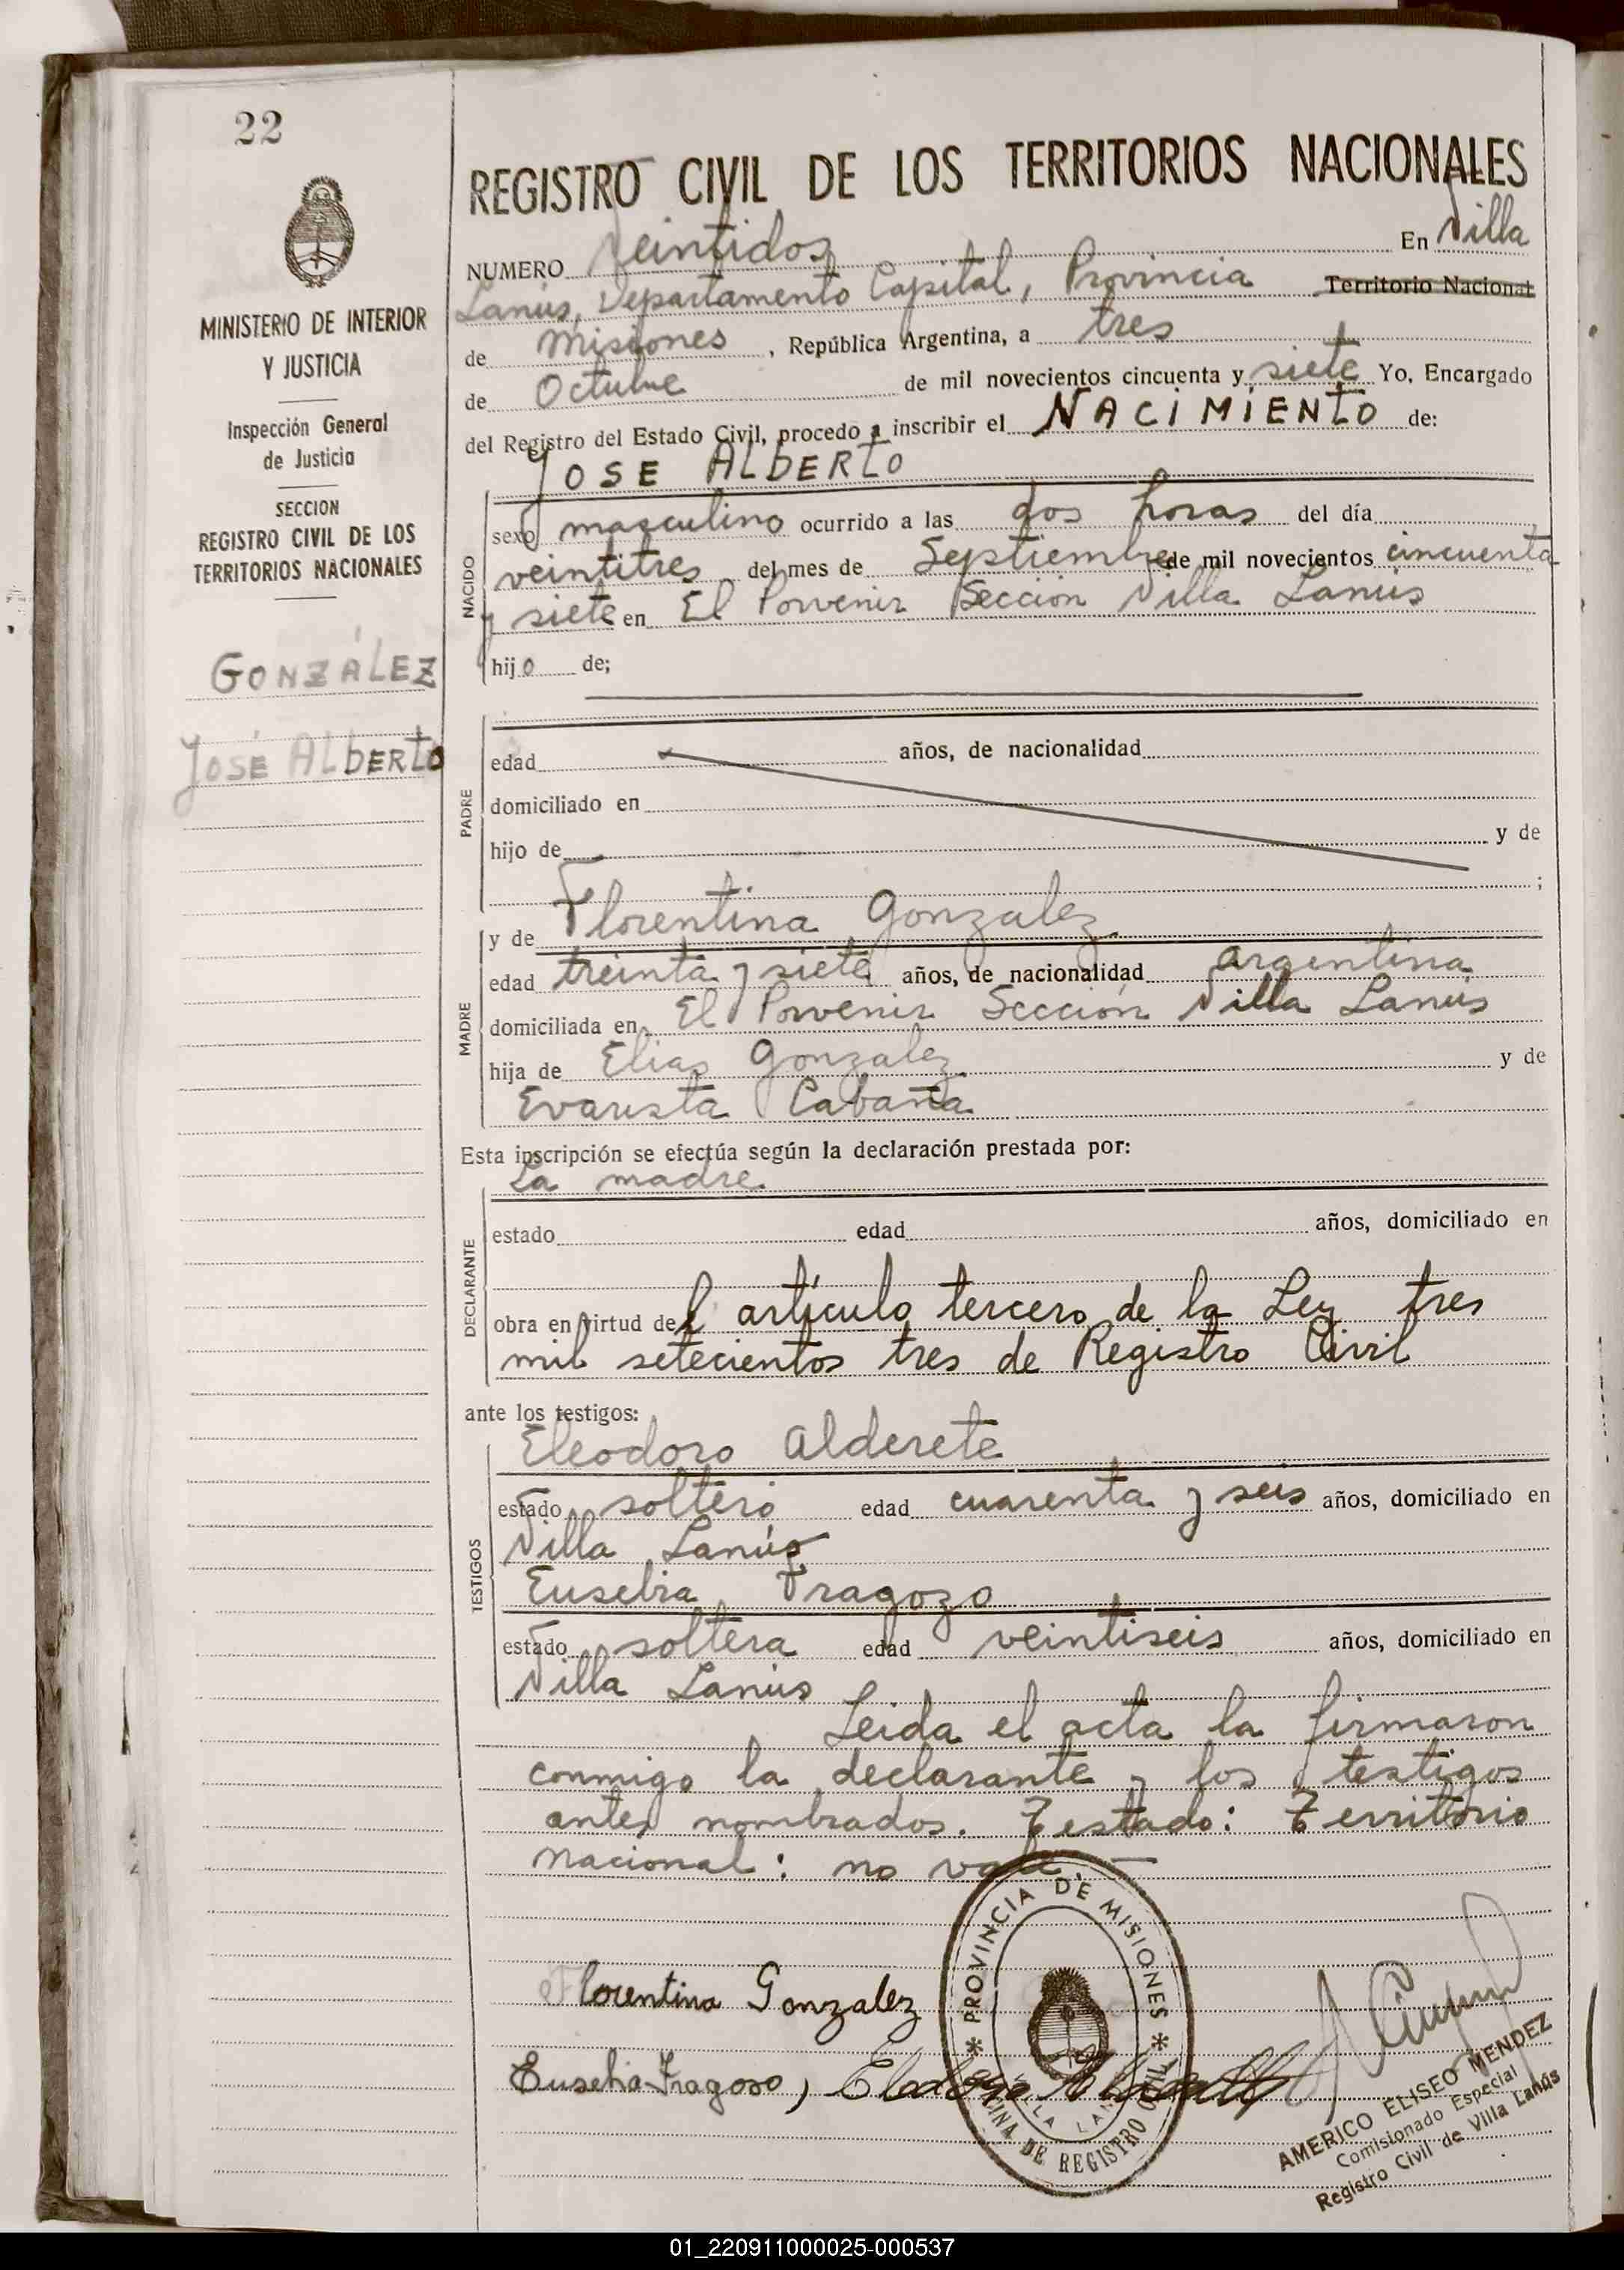 22
MINISTERIO DE INTERIOR
Y JUSTICIA
Inspección General
de Justicia
SECCION
REGISTRO CIVIL DE LOS
TERRITORIOS NACIONALES
GONZÁLEZ
JOSÉ ALBERTO
REGISTRO CIVIL DE LOS TERRITORIOS NACIONALES
NUMERO Veintidos En Villa
Lanús, Departamento Capital, Provincia Territorio Nacional
de Misiones, República Argentina, a tres
de Octubre de mil novecientos cincuenta y siete Yo, Encargado
del Registro del Estado Civil, procedo a inscribir el NACIMIENTO de:
JOSE ALBERTO
NACIDO
sexo masculino ocurrido a las dos horas del día
veintitres del mes de Septiembre de mil novecientos cincuenta
y siete en El Porvenir Sección Villa Lanús
hijo de;
PADRE
edad años, de nacionalidad
domiciliado en
hijo de y de
;
MADRE
y de Florentina Gonzalez
edad treinta y siete años, de nacionalidad argentina
domiciliada en El Porvenir Sección Villa Lanús
hija de Elias Gonzalez y de
Evarista Cabaña
Esta inscripción se efectúa según la declaración prestada por:
La madre
DECLARANTE
estado edad años, domiciliado en
obra en virtud del artículo tercero de la Ley tres
mil setecientos tres de Registro Civil
ante los testigos:
TESTIGOS
Eleodoro Alderete
estado soltero edad cuarenta y seis años, domiciliado en
Villa Lanús
Eusebia Fragozo
estado soltera edad veintiseis años, domiciliado en
Villa Lanús
Leida el acta la firmaron
conmigo la declarante y los testigos
antes nombrados. Testado: Territorio
Nacional: no vale.—
PROVINCIA DE MISIONES
OFICINA DE REGISTRO CIVIL
VILLA LANUS
Florentina Gonzalez
Eusebia Fragoso,
AMERICO ELISEO MENDEZ
Comisionado Especial
Registro Civil de Villa Lanús
01_220911000025-000537